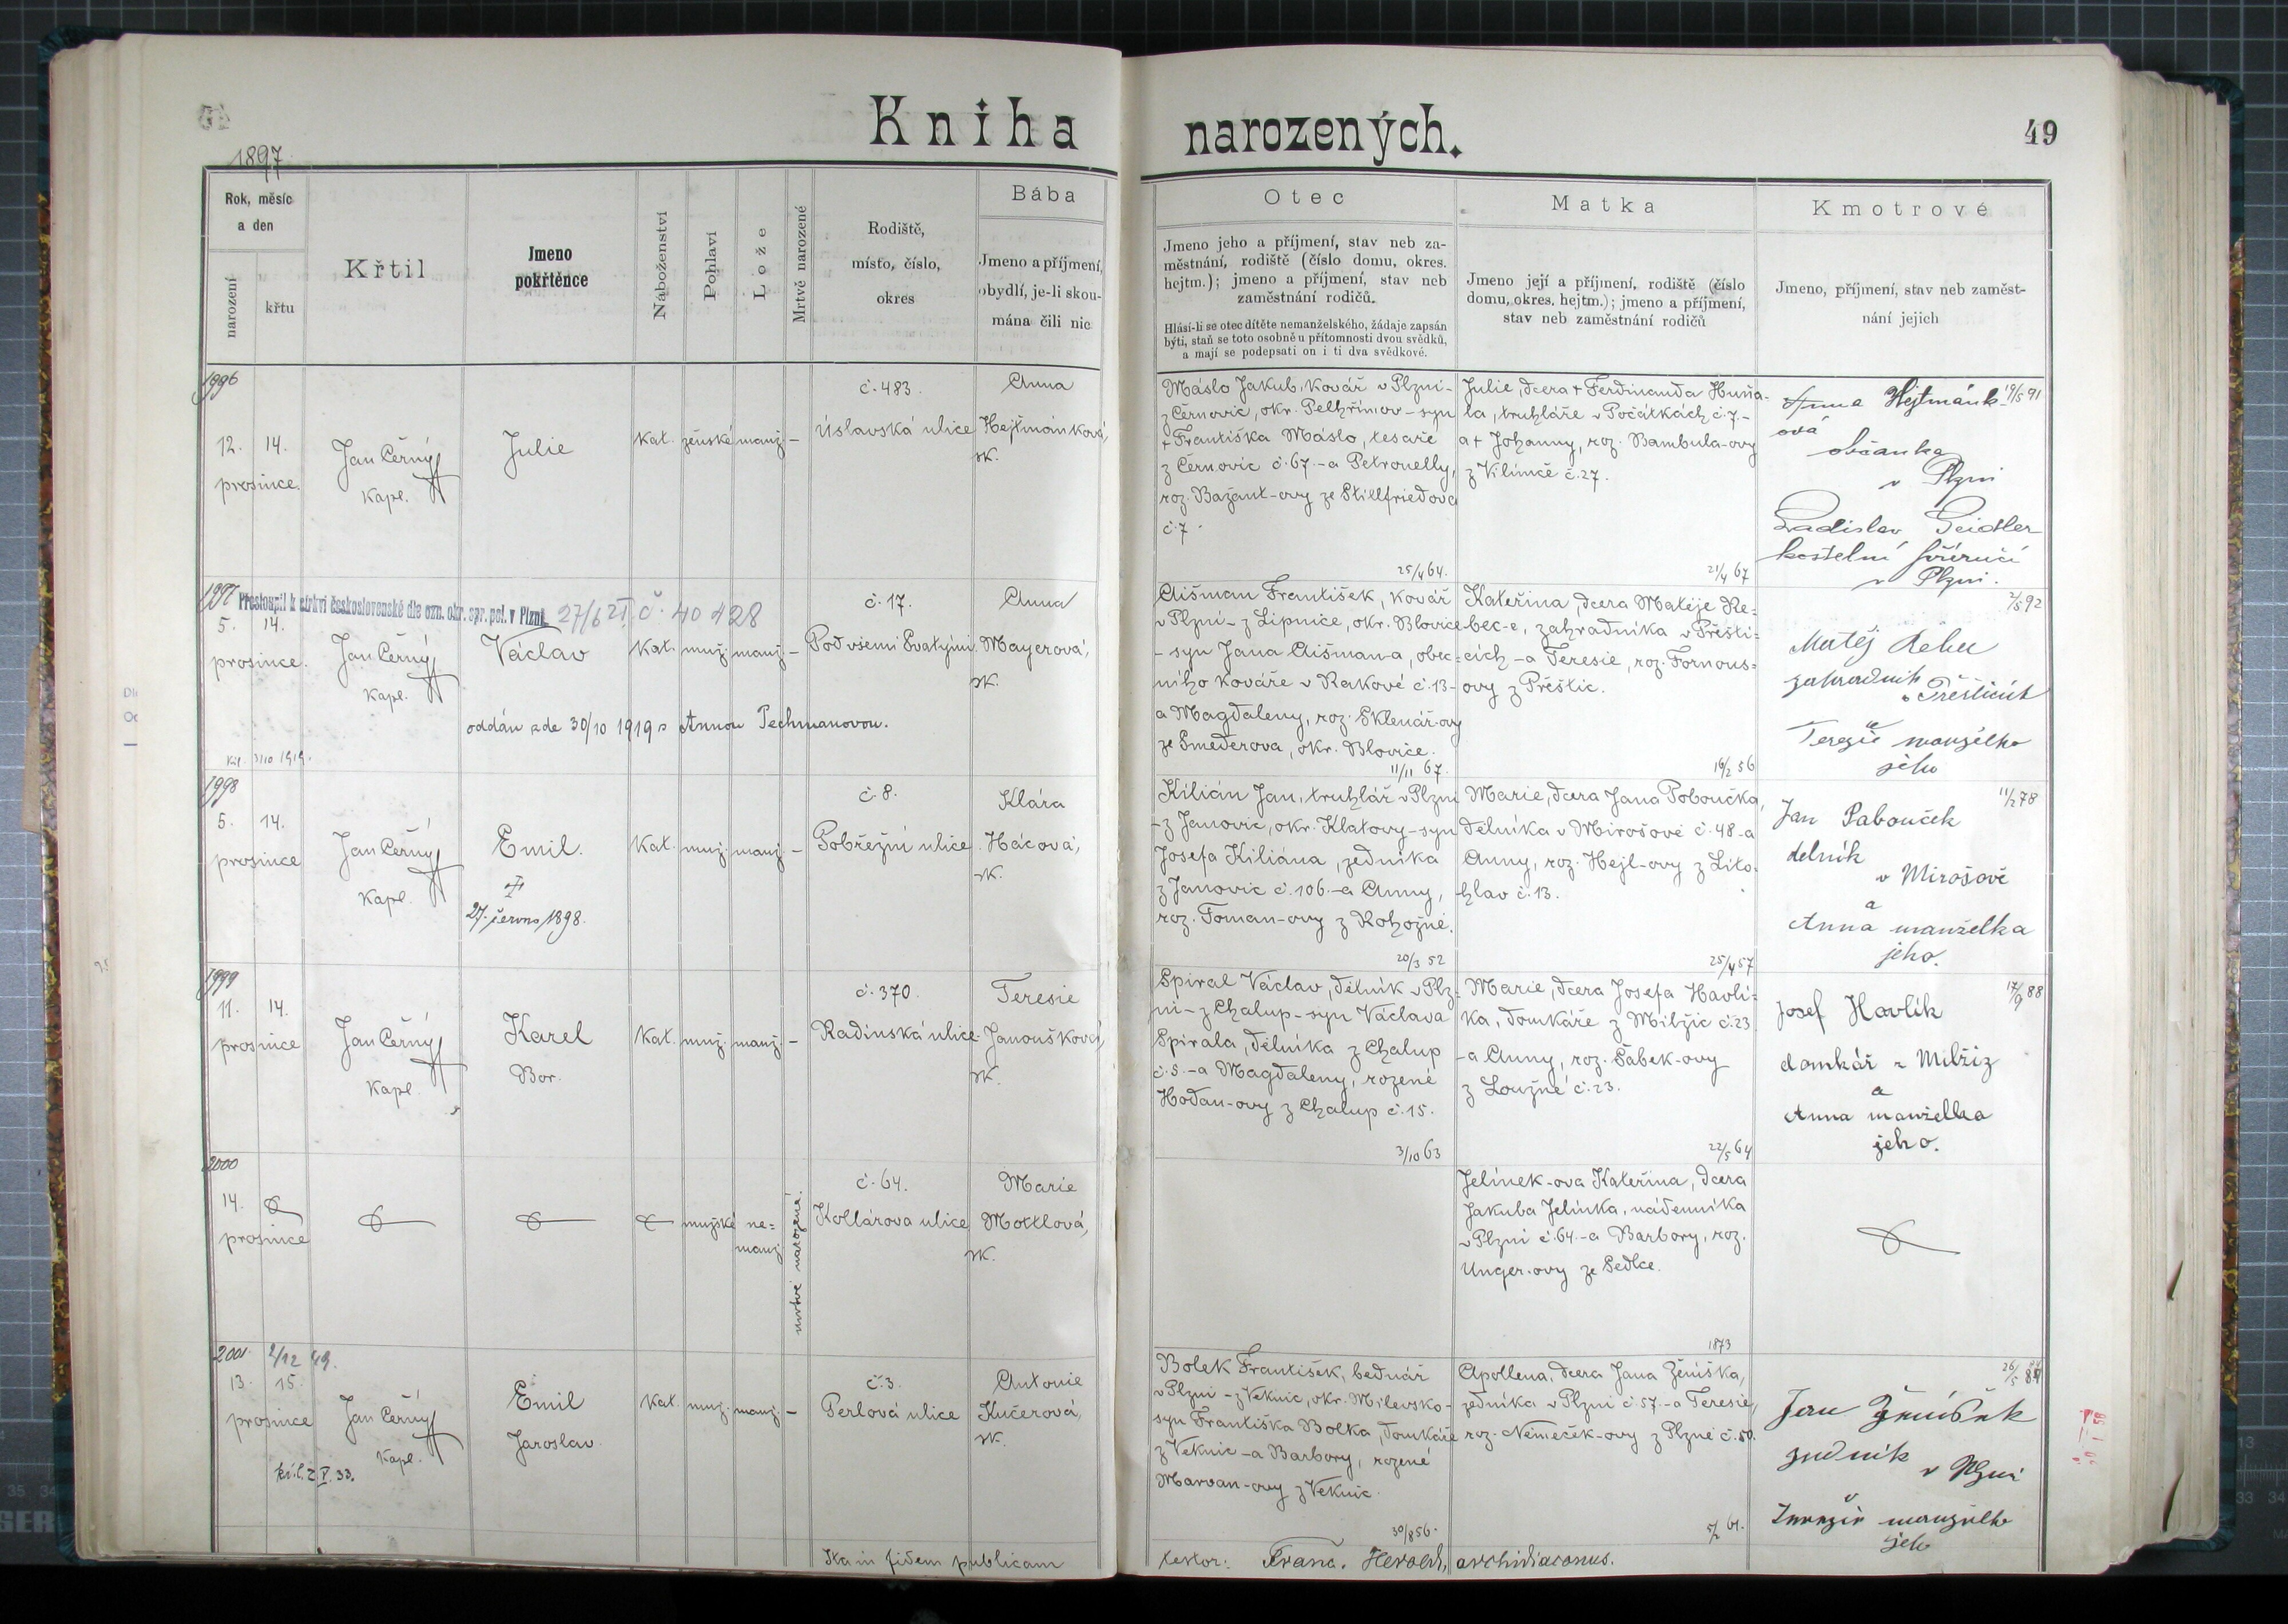 Kniha narozených.
49
1897
Rok, měsíc
a den
narození
křtu
Křtil
Jmeno
pokřtěnce
Náboženství
Pohlaví
Lože
Mrtvě narozené
Rodiště,
místo, číslo,
okres
Bába
Jmeno a příjmení,
obydlí, je-li skou-
mána čili nic
Otec
Jmeno jeho a příjmení, stav neb za-
městnání, rodiště (číslo domu, okres.
hejtm.); jmeno a příjmení, stav neb
zaměstnání rodičů.
Hlásí-li se otec dítěte nemanželského, žádaje zapsán
býti, staň se toto osobně u přítomnosti dvou svědků,
a mají se podepsati on i ti dva svědkové.
Matka
Jmeno její a příjmení, rodiště (číslo
domu, okres. hejtm.); jmeno a příjmení,
stav neb zaměstnání rodičů
Kmotrové
Jmeno, příjmení, stav neb zaměst-
nání jejich
1996
12. 14.
prosince.
Jan Černý
Kapl.
Julie
Kat. ženské manž. –
č. 483.
Úslavská ulice
Anna
Hejtmánková,
zk.
Máslo Jakub, kovář v Plzni -
z Černovic, okr. Pelhřimov - syn
+ Františka Máslo, tesaře
z Černovic č. 67. - a Petronelly,
roz. Bažant-ovy ze Stillfriedova
č. 7.
25/4 64.
Julie, dcera + Ferdinanda Huňa-
la, truhláře v Počátkách č. 7. -
a + Johanny, roz. Bambula-ovy
z Vilímče č. 27.
21/4 67
19/5 91
Anna Hejtmánk-
ová
občanka
v Plzni
Ladislav Geidler
kostelní
v Plzni.
1997
Přestoupil k církvi československé dle ozn. okr. spr. pol. v Plzni 27/6 21, č. 40 428
5. 14.
prosince.
Jan Černý
Kapl.
Václav
Kat. muž. manž. –
č. 17.
Pod všemi Svatými
Anna
Mayerová,
zk.
oddán zde 30/10 1919 s Annou Pechmanovou.
31/10 1919.
Aišman František, kovář
v Plzni - z Lipnice, okr. Blovice
- syn Jana Aišman-a, obec-
ního kováře v Rakové č. 13 -
a Magdaleny, roz. Sklenář-ovy
ze Smederova, okr. Blovice.
11/11 67.
Kateřina, dcera Matěje Re-
bec-e, zahradníka v Přešti-
cích - a Teresie, roz. Fornous-
ovy z Přeštic.
16/2 56
2/5 92
Matěj
zahradník
v Přešticích
a
Terezie manželka
jeho
1998
5. 14.
prosince
Jan Černý
Kapl.
Emil.
27. června 1898.
Kat. muž. manž. –
č. 8.
Pobřežní ulice
Klára
Hácová,
zk.
Kilián Jan, truhlář v Plzni
- z Janovic, okr. Klatovy - syn
Josefa Kiliána, zedníka
z Janovic č. 106. - a Anny,
roz. Toman-ovy z Rohozné.
20/3 52
Marie, dcera Jana Poboučka,
dělníka v Mirošově č. 48 - a
Anny, roz. Hejl-ovy z Lito-
hlav č. 13.
25/4 57
11/2 78
Jan Pabouček
delník
v Mirošově
a
Anna manželka
jeho.
1999
11. 14.
prosince
Jan Černý
Kapl.
Karel
Bor.
Kat. muž. manž. –
č. 370.
Radinská ulice
Teresie
Janoušková,
zk.
Spiral Václav, dělník v Plz-
ni - z Chalup - syn Václava
Spirala, dělníka z Chalup
č. 5. - a Magdaleny, rozené
Hodan-ovy z Chalup č. 15.
3/10 63
Marie, dcera Josefa Havlí-
ka, domkáře z Milžic č. 23
- a Anny, roz. Šabek-ovy
z Loužné č. 23.
22/5 64
17/9 88
Josef Havlík
domkář z Milžiz
a
Anna manželka
jeho.
2000
14.
prosince
mužské ne-
manž.
mrtvě narozené.
č. 64.
Kollárova ulice
Marie
Mottlová,
zk.
Jelínek-ova Kateřina, dcera
Jakuba Jelínka, nádenníka
v Plzni č. 64. - a Barbory, roz.
Unger-ovy ze Sedlce.
1873
2001 2/12 49.
13. 15.
prosince
Jan Černý
Kapl.
Emil
Jaroslav
Kat. muž. manž. –
č. 3.
Perlová ulice
Antonie
Kučerová,
zk.
Bolek František, bednář
v Plzni - z Veknic, okr. Milevsko -
syn Františka Bolka, domkáře
z Veknic - a Barbory, rozené
Marvan-ovy z Veknic.
30/8 56.
Apollena, dcera Jana Ženíška,
zedníka v Plzni č. 57. - a Teresie,
roz. Němeček-ovy z Plzně č. 50.
5/2 61.
Jan Ženíšek
zedník
v Plzni
a
manželka
jeho
Ita in fidem publicam testor: Franc. Herold, archidiaconus.